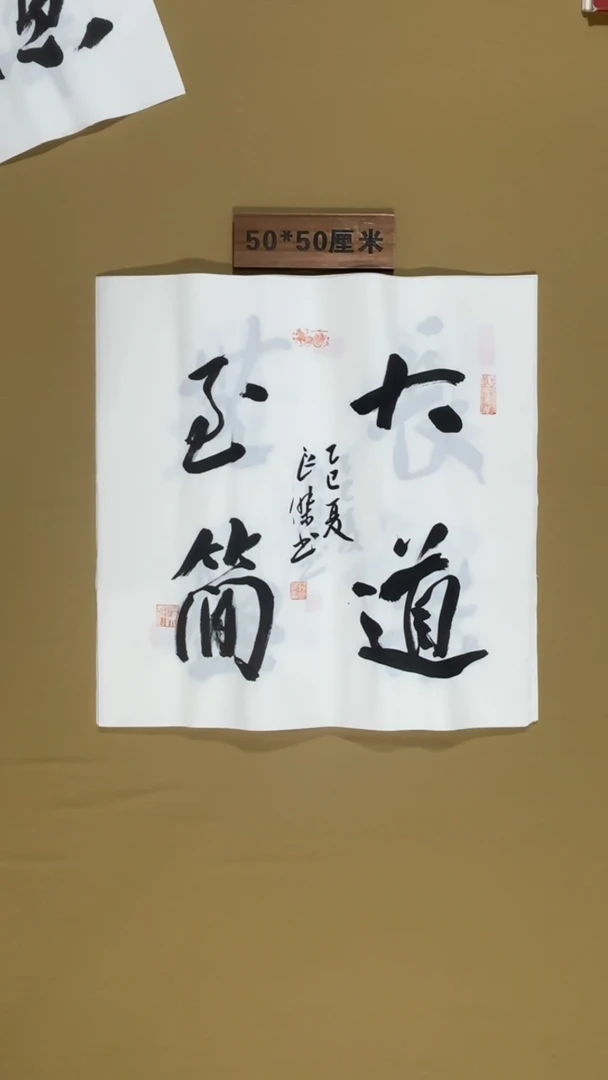 50*50厘米
大道
至简
乙巳夏
良傑书